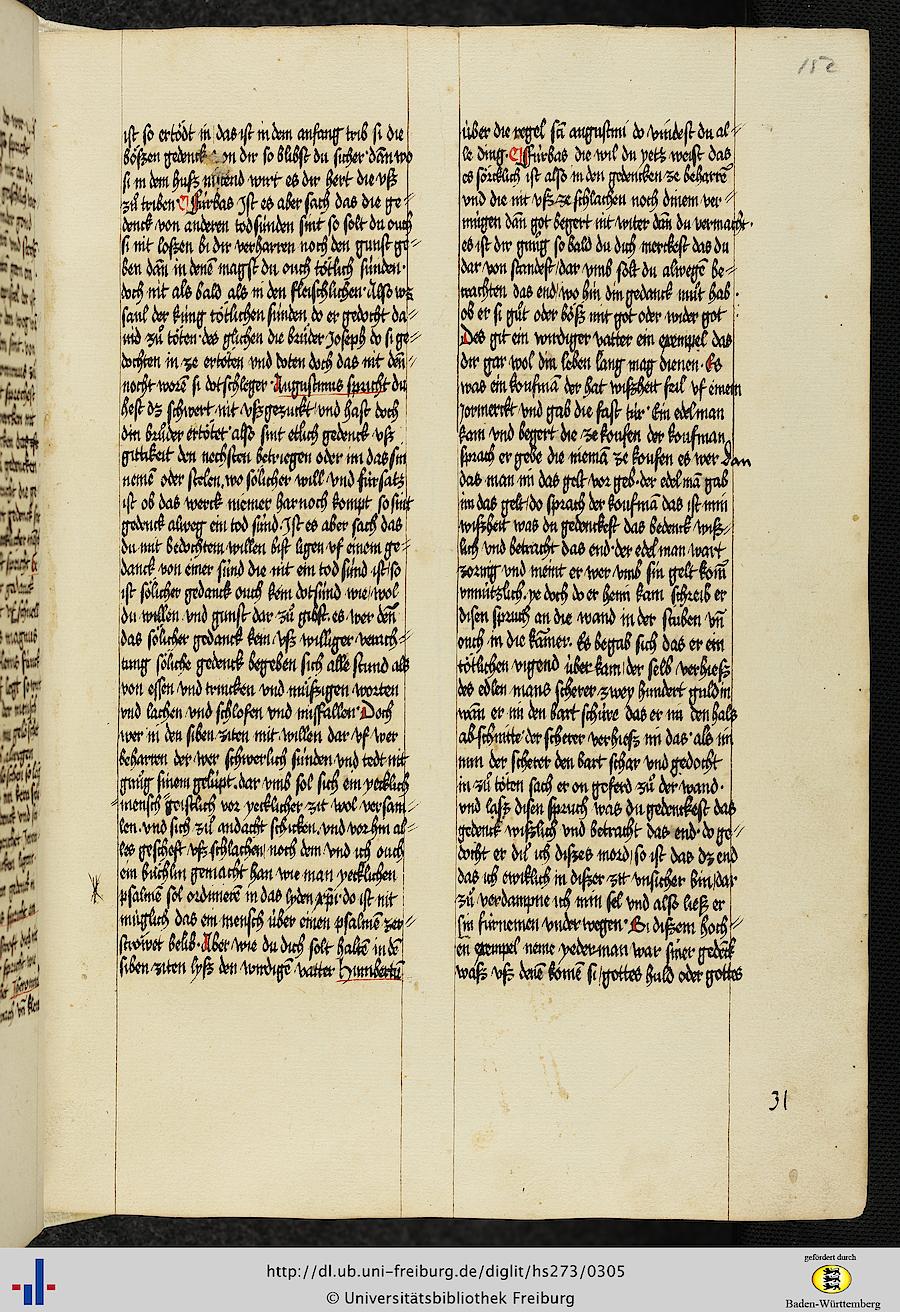 152
ist so ertödt in das ist in dem anfang trib si die
bößen gedenck von dir so blibst du sicher dan wo
si in dem huß nigend wirt es dir hert die vß
zu triben Fúrbas Ist es aber sach das die ge-
denck von anderen todsúnden sint so solt du ouch
si nit loßen bi dir verharren noch den gunst ge-
ben dañ in denē magst du ouch tötlich súnden.
doch nit als bald als in den fleischlichen. Also wz
saul der kúng tötlichen súnden do er gedocht da-
uid zů töten. des glichen die brúder Joseph do si ge-
dochten in ze ertöten vnd doten doch das nit den-
nocht worē si dotschleger. Augustinus spricht du
hest dz schwert nit vßgezuckt vnd hast doch
din brůder ertötet also sint etlich gedenck vß
gittikeit den nechsten betriegen oder im das sin
nemē oder stelen. wo sölicher will vnd fúrsatz
ist ob das werck niemer harnoch kompt so sint
gedenck alweg ein tod súnd. Ist es aber sach das
du mit bedochtem willen bist ligen vf einem ge-
danck von einer súnd die nit ein tod súnd ist so
ist sölicher gedanck ouch kein dotsúnd wie wol
du willen vnd gunst dar zů gibst. es wer deñ
das sölicher gedanck kem vß williger verach-
tung söliche gedenck begeben sich alle stund als
von essen vnd trincken vnd můßigen worten
vnd lachen vnd schlofen vnd missfallen. Doch
wer in den siben ziten mit willen dar vf wer
beharren der wer schwerlich súnden vnd tedt nit
gnůg sinem gelúpt. dar vmb sol sich ein yecklich
mensch geistlich vor yecklicher zit wol versam-
len. vnd sich zů andacht schicken. vnd vor hin al-
les gescheft vß schlachen noch dem vnd ich ouch
ein búchlin gemacht han wie man yecklichen
psalmē sol ordinierē in das lyden xpi. do ist nit
múglich das ein mensch úber einen psalmē zer-
strowet belib. Aber wie du dich solt haltē in dē
siben ziten lyß den wirdigē vatter Humbertū
úber die regel sāt augustini do vindest du al-
le ding. Fúrbas die wil du yetz weist das
es sörcklich ist also in den gedencken ze beharrē
vnd die nit vß ze schlachen noch dinem ver-
múgen dan got begert nit witer dan du vermacht.
es ist dir gnůg so bald du dich merckest das du
dar von standest dar vmb solt du alwegē be-
trachten das end wo hin din gedanck můt hab
ob er si gůt oder böß mit got oder wider got
Des git ein wirdiger vatter ein exempel das
dir gar wol din leben lang mag dienen. Es
was ein koufmā der hat wißheit feil vf einem
jormerckt vnd gab die fast túr. Ein edel man
kam vnd begert die ze koufen der koufman
sprach er gebe die niemā ze koufen es wer dan
das man im das gelt vor geb. der edel mā gab
im das gelt do sprach der koufmā das ist min
wißheit was du gedenckest das bedenck wiß-
lich vnd betracht das end. der edel man wart
zornig vnd meint er wer vmb sin gelt kom
vnnutzlich. ye doch do er heim kam schreib er
disen spruch an die wand in der stuben vñ
ouch in die kāmer. Es begab sich das er ein
tötlichen vigend úber kam der selb verhieß
des edlen mans scherer zwey hundert guldin
wan er im den bart schúre das er im den hals
ab schnitte der scherer verhieß im das. als im
nun der scherer den bart schar vnd gedocht
in zů töten sach er on geferd zů der wand.
vnd laß disen spruch was du gedenckest das
gedenck wißlich vnd betracht das end. do ge-
docht er dů ich dißes mord so ist das dz end
das ich ewiklich in dißer zit vnsicher bin dar
zů verdampne ich min sel vnd also ließ er
sin fúrnemen vnder wegen. Bi dißem hoch-
en exempel neme yederman war siner gedēck
waß vß denē komē si gottes huld oder gottes
31
http://dl.ub.uni-freiburg.de/diglit/hs273/0305
© Universitätsbibliothek Freiburg
gefördert durch
Baden-Württemberg